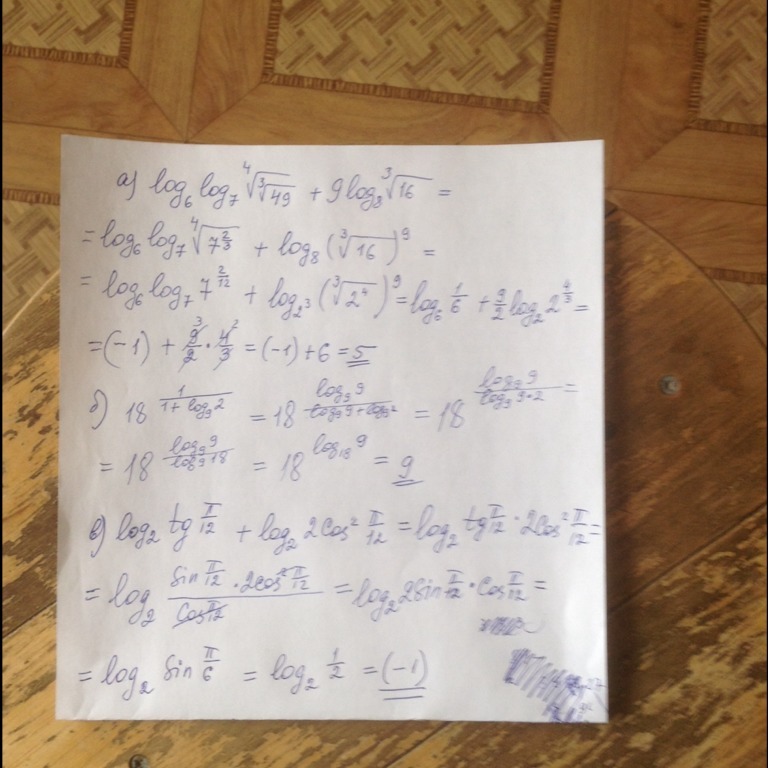 а) log₆ log₇ ⁴√(³√49) + 9log₈ ³√16 =
= log₆ log₇ ⁴√(7^(2/3)) + log₈ (³√16)⁹ =
= log₆ log₇ 7^(2/12) + log_(2³) (³√(2⁴))⁹ = log₆ 1/6 + 9/2 log₂ 2^(4/3) =
= (-1) + 9/2 · 4/3 = (-1) + 6 = 5
б) 18^(1/(1 + log₉2)) = 18^(log₉9/(log₉9 + log₉2)) = 18^(log₉9/(log₉9·2)) =
= 18^(log₉9/log₉18) = 18^(log₁₈9) = 9
в) log₂ tg π/12 + log₂ 2cos² π/12 = log₂ tg π/12 · 2cos² π/12 =
= log₂ (sin π/12 · 2cos² π/12)/(cos π/12) = log₂ 2sin π/12 · cos π/12 =
= log₂ sin π/6 = log₂ 1/2 = (-1)